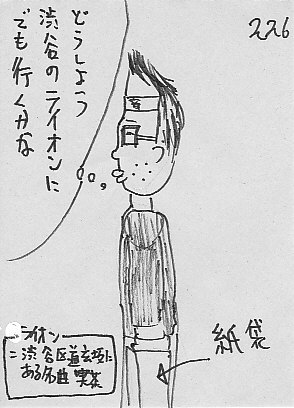 226
どうしよう
渋谷のライオンに
でも行くかな
紙袋
ライオン
=渋谷区道玄坂に
ある名曲喫茶